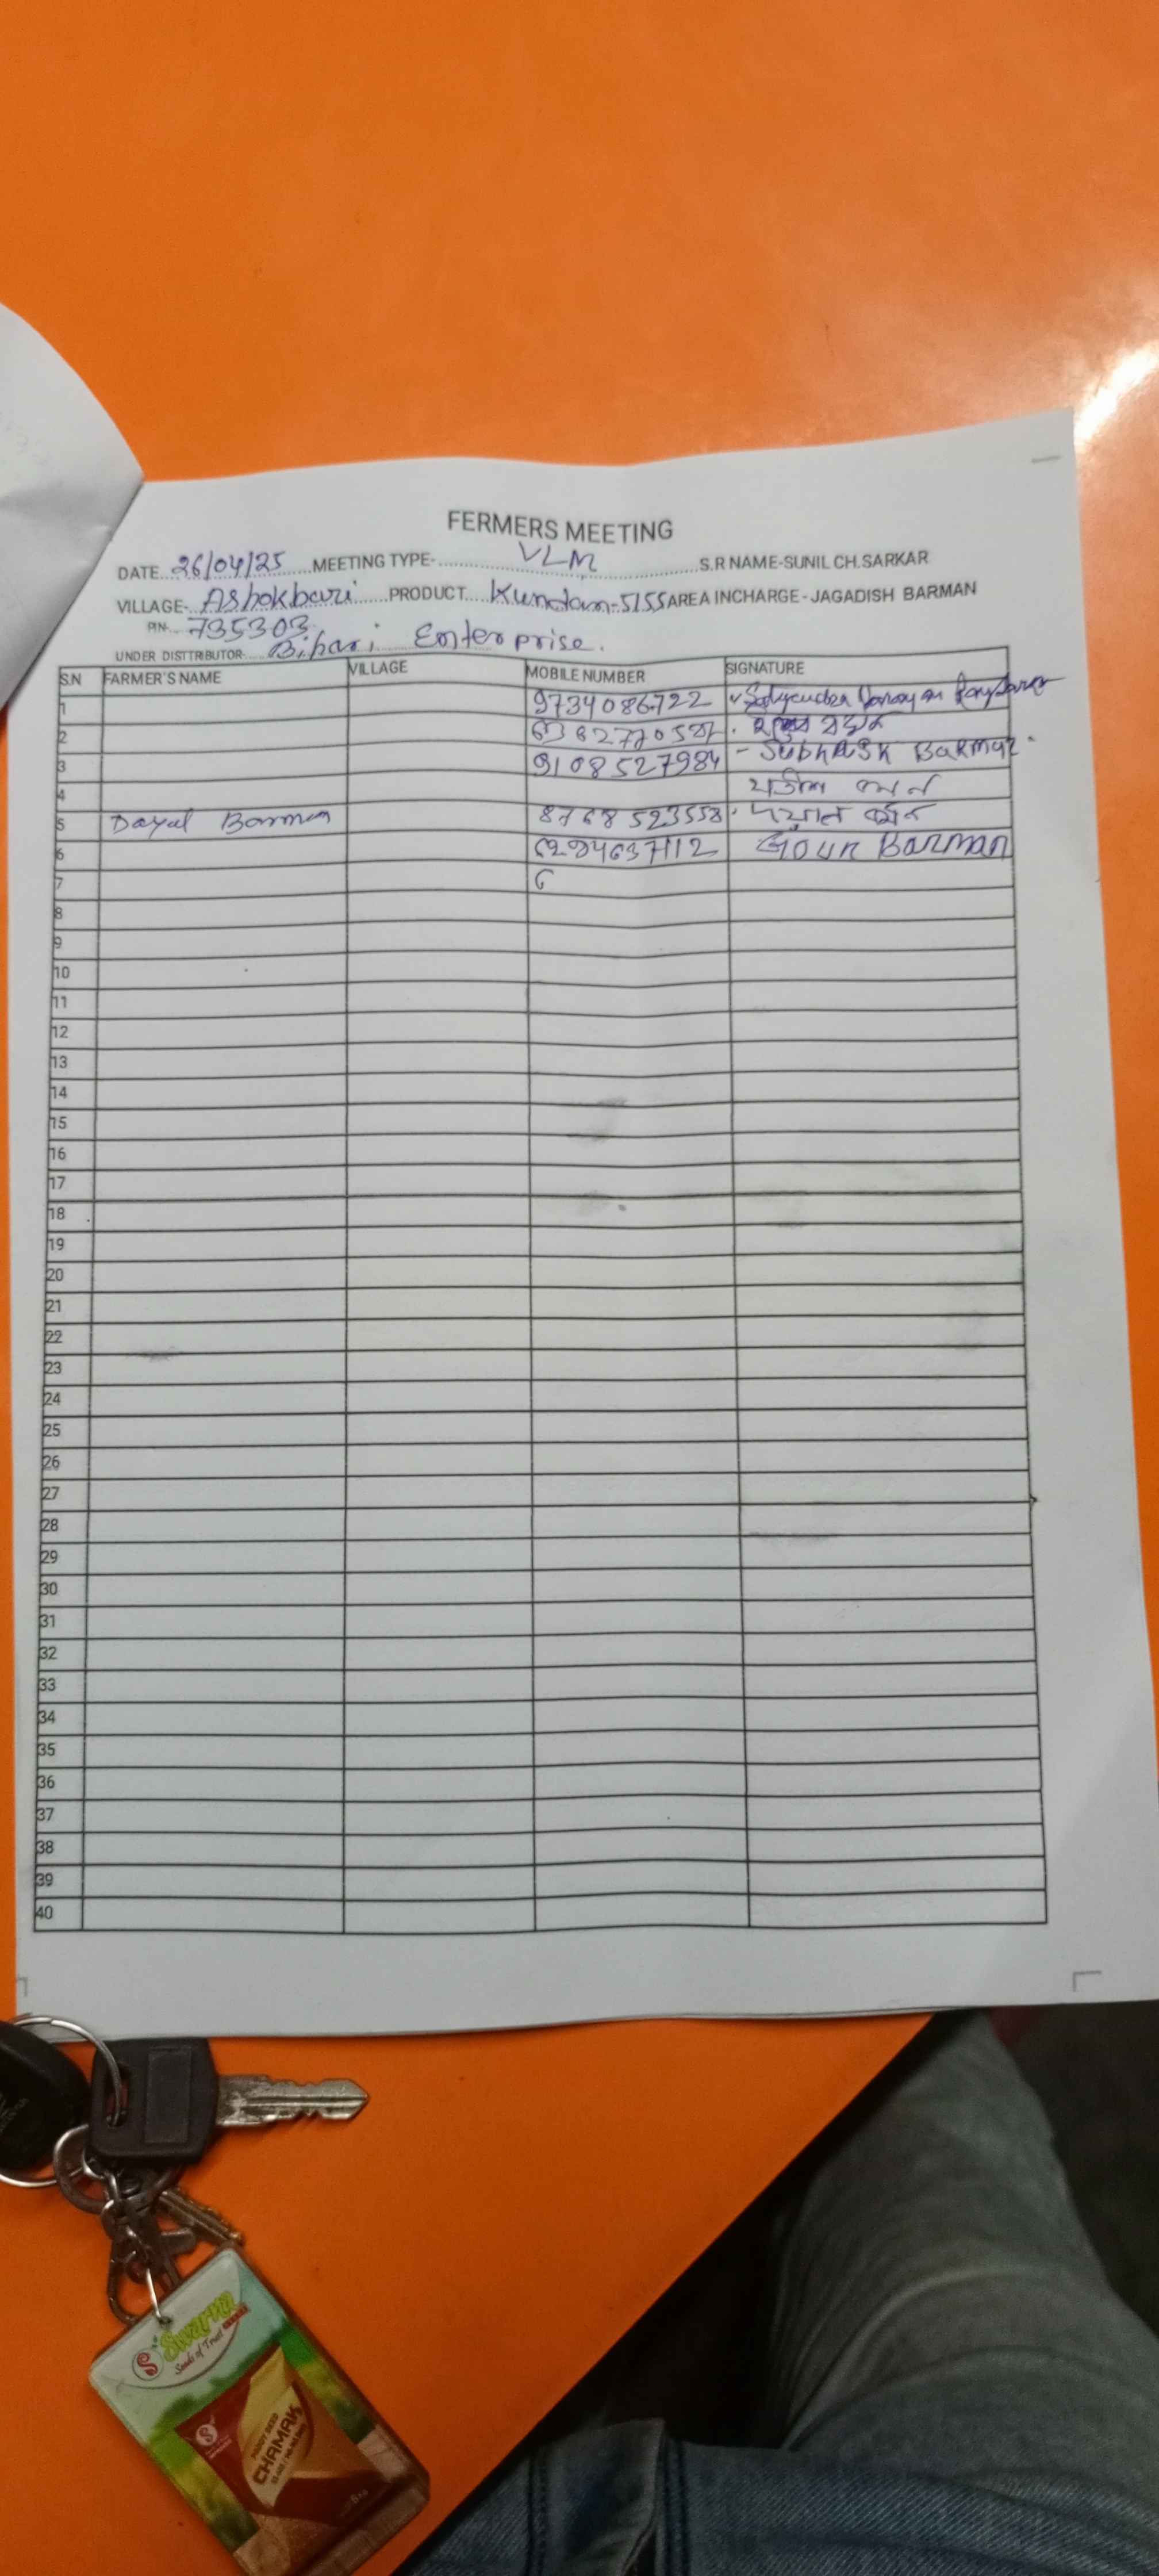 FERMERS MEETING
DATE 26/04/25 MEETING TYPE- VLM S.R NAME-SUNIL CH.SARKAR
VILLAGE- Ashokbari PRODUCT Kundan-5155 AREA INCHARGE - JAGADISH BARMAN
PIN- 735303
UNDER DISTTRIBUTOR- Bihari Enterprise.
S.N FARMER'S NAME VILLAGE MOBILE NUMBER SIGNATURE
1 9734086722
2
3 9108527984 - SUBHASK BARMAN
4
5 Dayal Barman 8768523558 দয়াল বর্মন
6 Gour BARMAN
7 6
8
9
10
11
12
13
14
15
16
17
18
19
20
21
22
23
24
25
26
27
28
29
30
31
32
33
34
35
36
37
38
39
40
Swarna
Seeds of Trust
PADDY SEED
CHAMAK